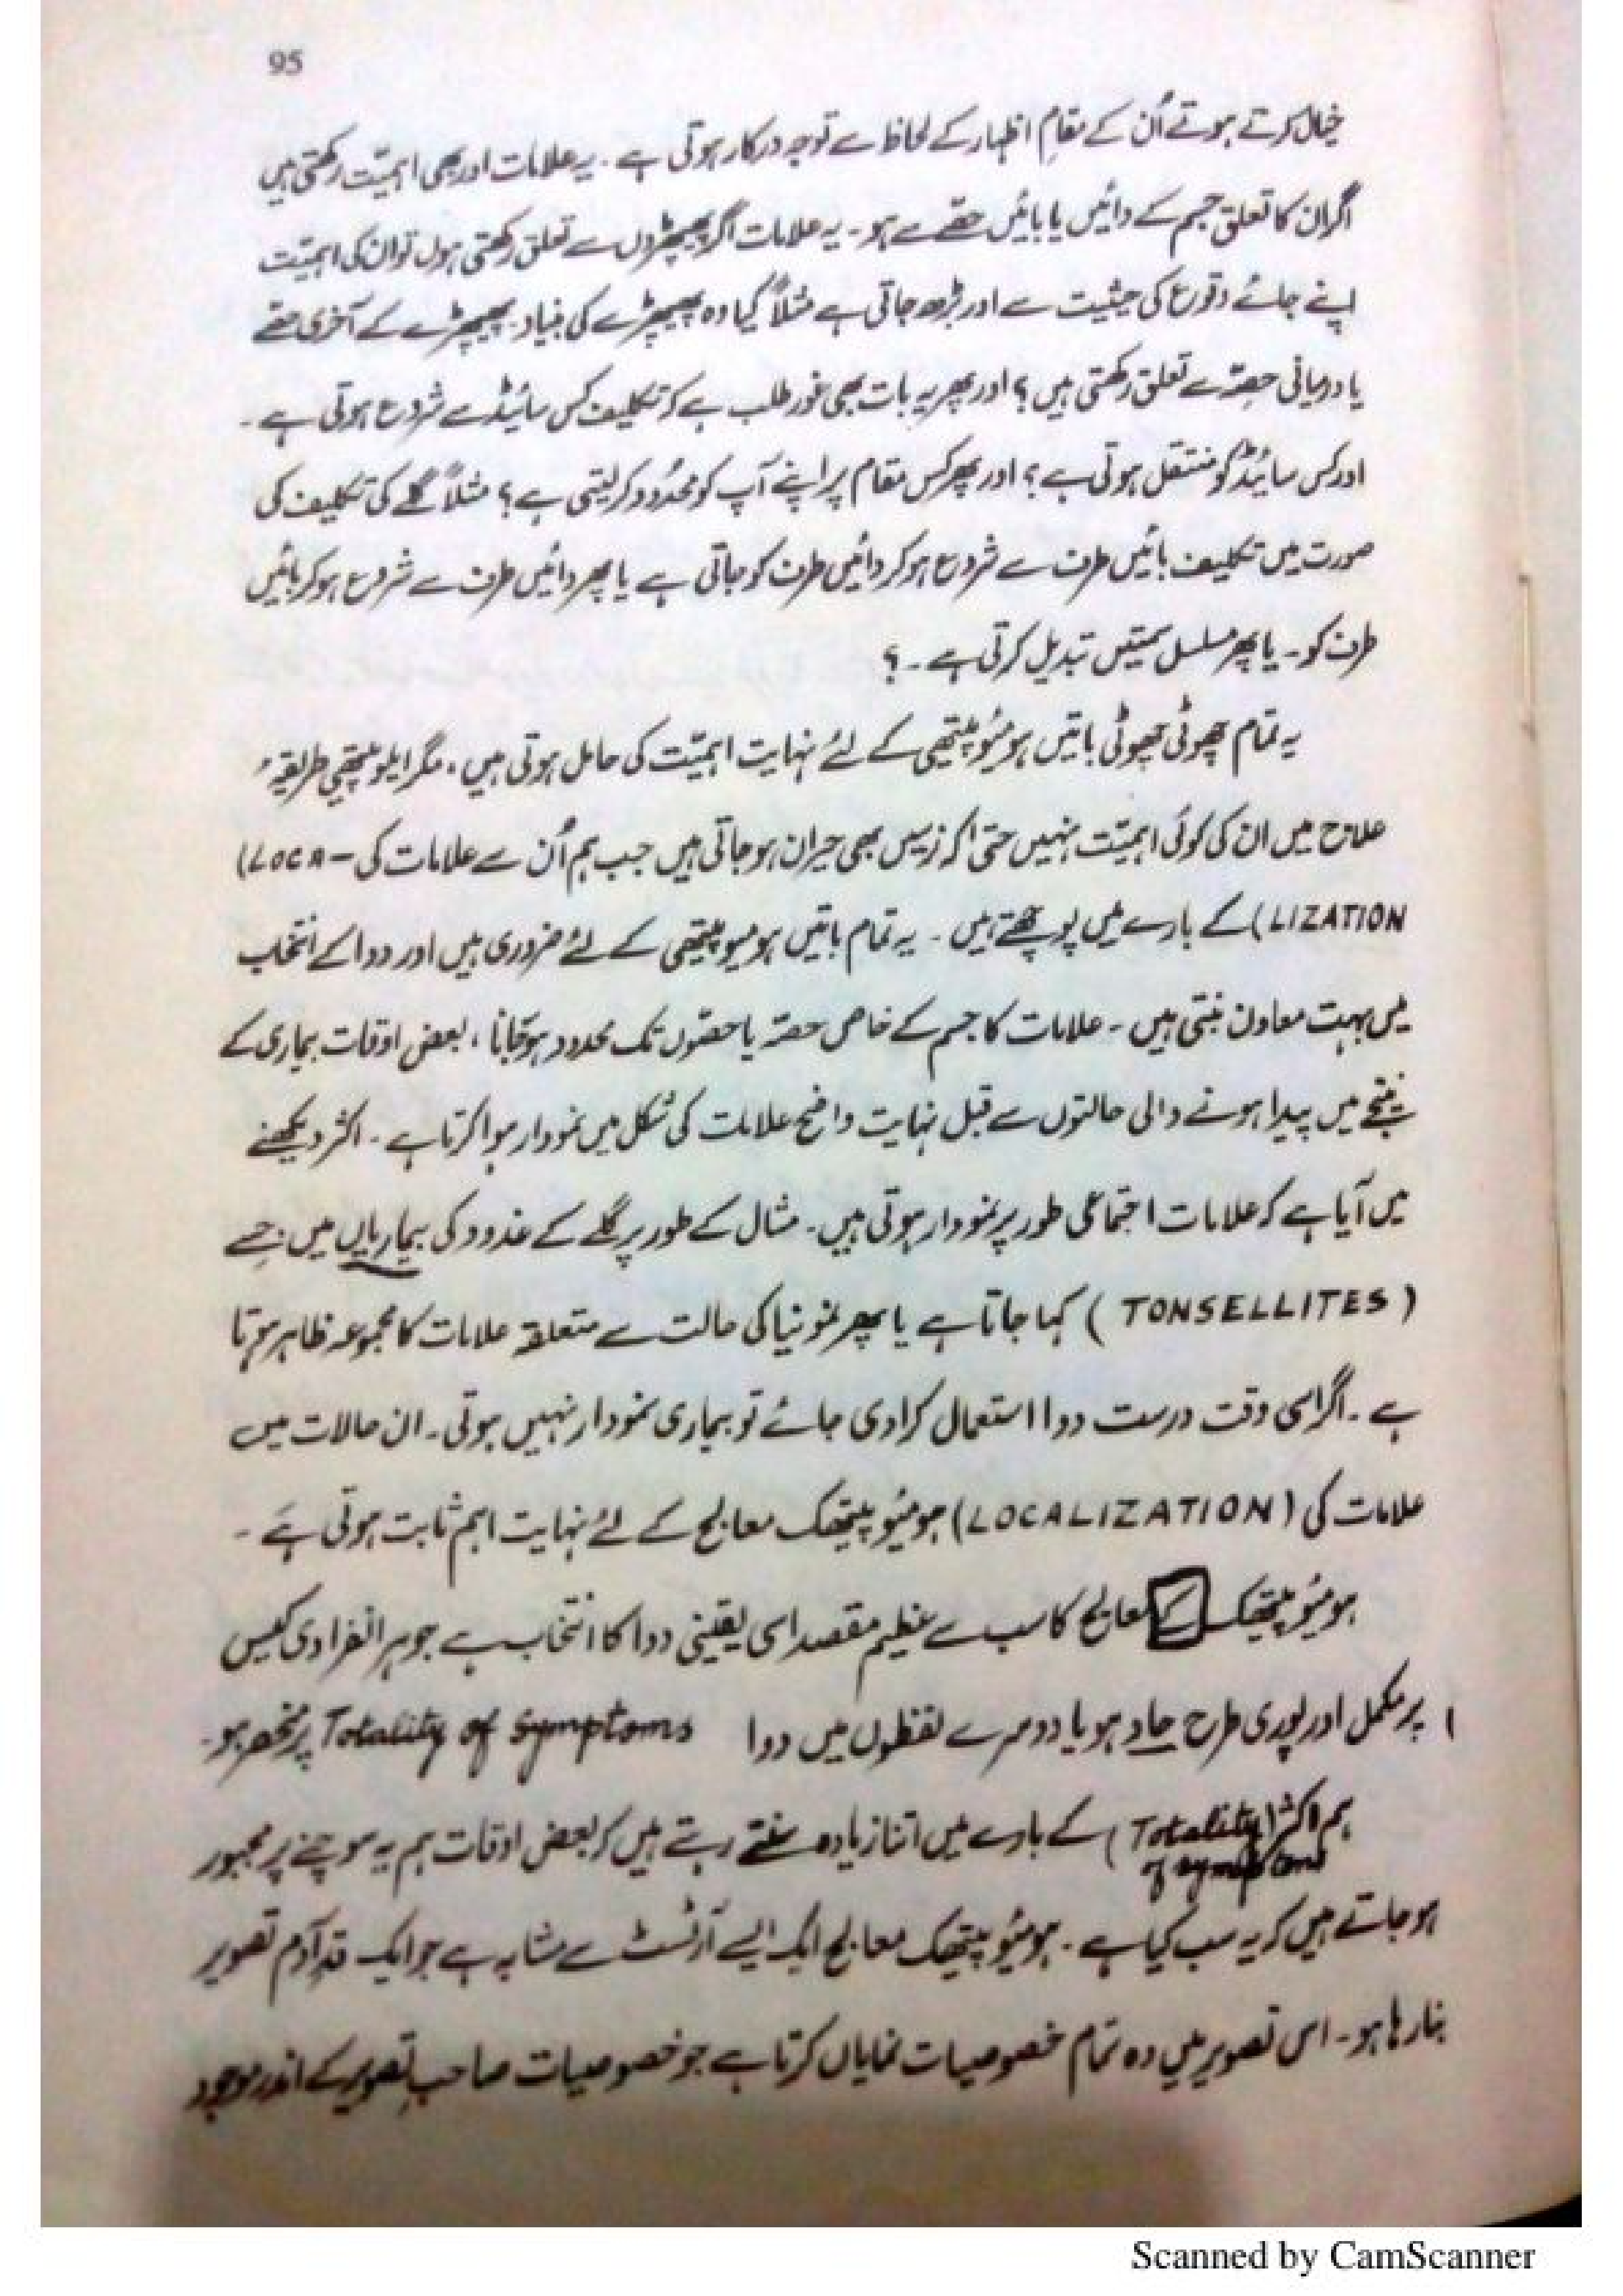 95
خیال کرتے ہوتے اُن کے مقامِ اظہار کے لحاظ سے توجہ درکار ہوتی ہے ۔ یہ علامات اور بھی اہمیّت رکھتی ہیں
اگر ان کا تعلق جسم کے دائیں یا بائیں حصّے سے ہو ۔ یہ علامات اگر پھیپھڑوں سے تعلق رکھتی ہوں تو ان کی اہمیّت
اپنے جائے وقوع کی حیثیت سے اور بڑھ جاتی ہے مثلاً کیا وہ پھیپھڑے کی بنیاد ۔ پھیپھڑے کے آخری حصّے
یا درمیانی حصّہ سے تعلق رکھتی ہیں ؟ اور پھر یہ بات بھی غور طلب ہے کہ تکلیف کس سائیڈ سے شروع ہوتی ہے ۔
اور کس سائیڈ کو منتقل ہوتی ہے ؟ اور پھر کس مقام پر اپنے آپ کو محدُود کر لیتی ہے ؟ مثلاً گلے کی تکلیف کی
صورت میں تکلیف بائیں طرف سے شروع ہو کر دائیں طرف کو جاتی ہے یا پھر دائیں طرف سے شروع ہو کر بائیں
طرف کو ۔ یا پھر مسلسل سمتیں تبدیل کرتی ہے ۔ ؟
یہ تمام چھوٹی چھوٹی باتیں ہومیوُپیتھی کے لئے نہایت اہمیّت کی حامل ہوتی ہیں ، مگر ایلوپیتھی طریقہٴ
علاج میں ان کی کوئی اہمیّت نہیں حتیٰ کہ نرسیں بھی حیران ہو جاتی ہیں جب ہم اُن سے علامات کی (LOCA-
LIZATION) کے بارے میں پوچھتے ہیں ۔ یہ تمام باتیں ہومیوپیتھی کے لئے ضروری ہیں اور دوا کے انتخاب
میں بہت معاون بنتی ہیں ۔ علامات کا جسم کے خاص حصّہ یا حصّوں تک محدود ہو جانا ، بعض اوقات بیماری کے
نتیجے میں پیدا ہونے والی حالتوں سے قبل نہایت واضح علامات کی شکل میں نمودار ہوا کرتا ہے ۔ اکثر دیکھنے
میں آیا ہے کہ علامات اجتماعی طور پر نمودار ہوتی ہیں ۔ مثال کے طور پر گلے کے غدود کی بیماریاں میں جسے
(TONSELLITES) کہا جاتا ہے یا پھر نمونیا کی حالت سے متعلقہ علامات کا مجموعہ ظاہر ہوتا
ہے ۔ اگر اسی وقت درست دوا استعمال کرا دی جائے تو بیماری نمودار نہیں ہوتی ۔ ان حالات میں
علامات کی (LOCALIZATION) ہومیوُپیتھک معالج کے لئے نہایت اہم ثابت ہوتی ہے ۔
ہومیوُپیتھک کے معالج کا سب سے عظیم مقصد اسی یقینی دوا کا انتخاب ہے جو ہر انفرادی کیس
پر مکمل اور پوری طرح حاد ہو یا دوسرے لفظوں میں دوا Totality of Symptoms پر منحصر ہو ۔
ہم اکثر (Totality of symptoms) کے بارے میں اتنا زیادہ سنتے رہتے ہیں کہ بعض اوقات ہم یہ سوچنے پر مجبور
ہو جاتے ہیں کہ یہ سب کیا ہے ۔ ہومیوُپیتھک معالج ایک ایسے آرٹسٹ سے مشابہ ہے جو ایک قدِ آدم تصویر
بنا رہا ہو ۔ اس تصویر میں وہ تمام خصوصیات نمایاں کرتا ہے جو خصوصیات صاحبِ تصویر کے اندر موجود
Scanned by CamScanner